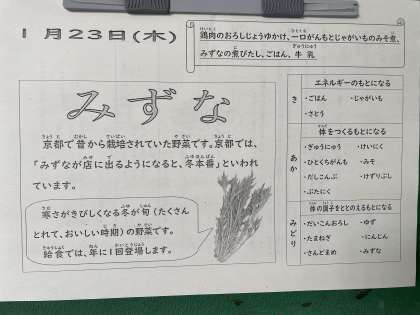 1月23日(木)
鶏肉のおろしじょうゆかけ、一口がんもとじゃがいものみそ煮、
みずなの煮びたし、ごはん、牛乳
みずな
京都で昔から栽培されていた野菜です。京都では、
「みずなが店に出るようになると、冬本番」といわれ
ています。
寒さがきびしくなる冬が旬(たくさん
とれて、おいしい時期)の野菜です。
給食では、年に1回登場します。
き
エネルギーのもとになる
・ごはん ・じゃがいも
・さとう
あか
体をつくるもとになる
・ぎゅうにゅう ・けいにく
・ひとくちがんも ・みそ
・だしこんぶ ・けずりぶし
・ぶたにく
みどり
体の調子をととのえるもとになる
・だいこんおろし ・ゆず
・たまねぎ ・にんじん
・さんどまめ ・みずな